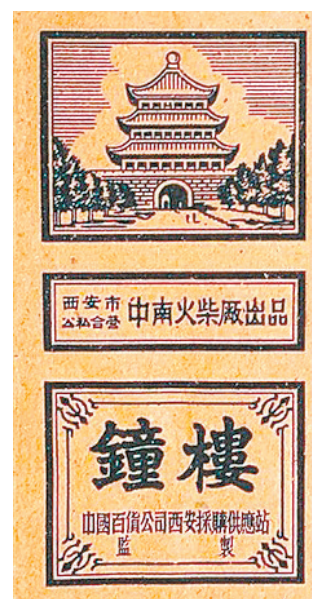 西安市
公私合营
中南火柴厰出品
鐘樓
中國百貨公司西安採購供應站
監製